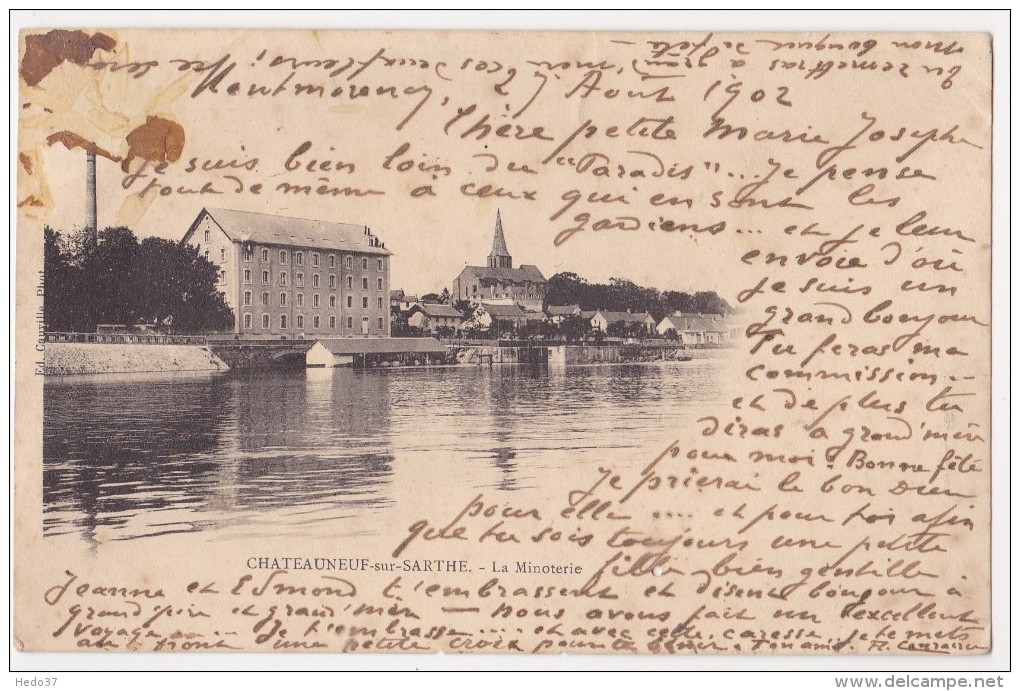 Montmorency, 27 Août 1902
Chère petite Marie Joseph
Je suis bien loin du "Paradis"... Je pense
tout de même à ceux qui en sont les
gardiens... et je leur
envoie d'où
je suis un
grand bonjour
Tu feras ma
commission -
et de plus tu
diras à grand'mèr
pour moi: Bonne fête
Je prierai le bon Dieu
pour elle .... et pour toi afin
que tu sois toujours une petite
fille bien gentille.
Jeanne et Edmond t'embrassent et disent bonjour à
grand père et grand'mèr - nous avons fait un excellent
voyage... Je t'embrasse.... et avec cette caresse je te mets
au front une petite croix pour te bénir. Ton ami.
Tu remettras à grand'mèr ces deux fleurs;
mon bouquet de fête -
Ed. Cauville Phot.
CHATEAUNEUF-sur-SARTHE. - La Minoterie
Hedo37
www.delcampe.net